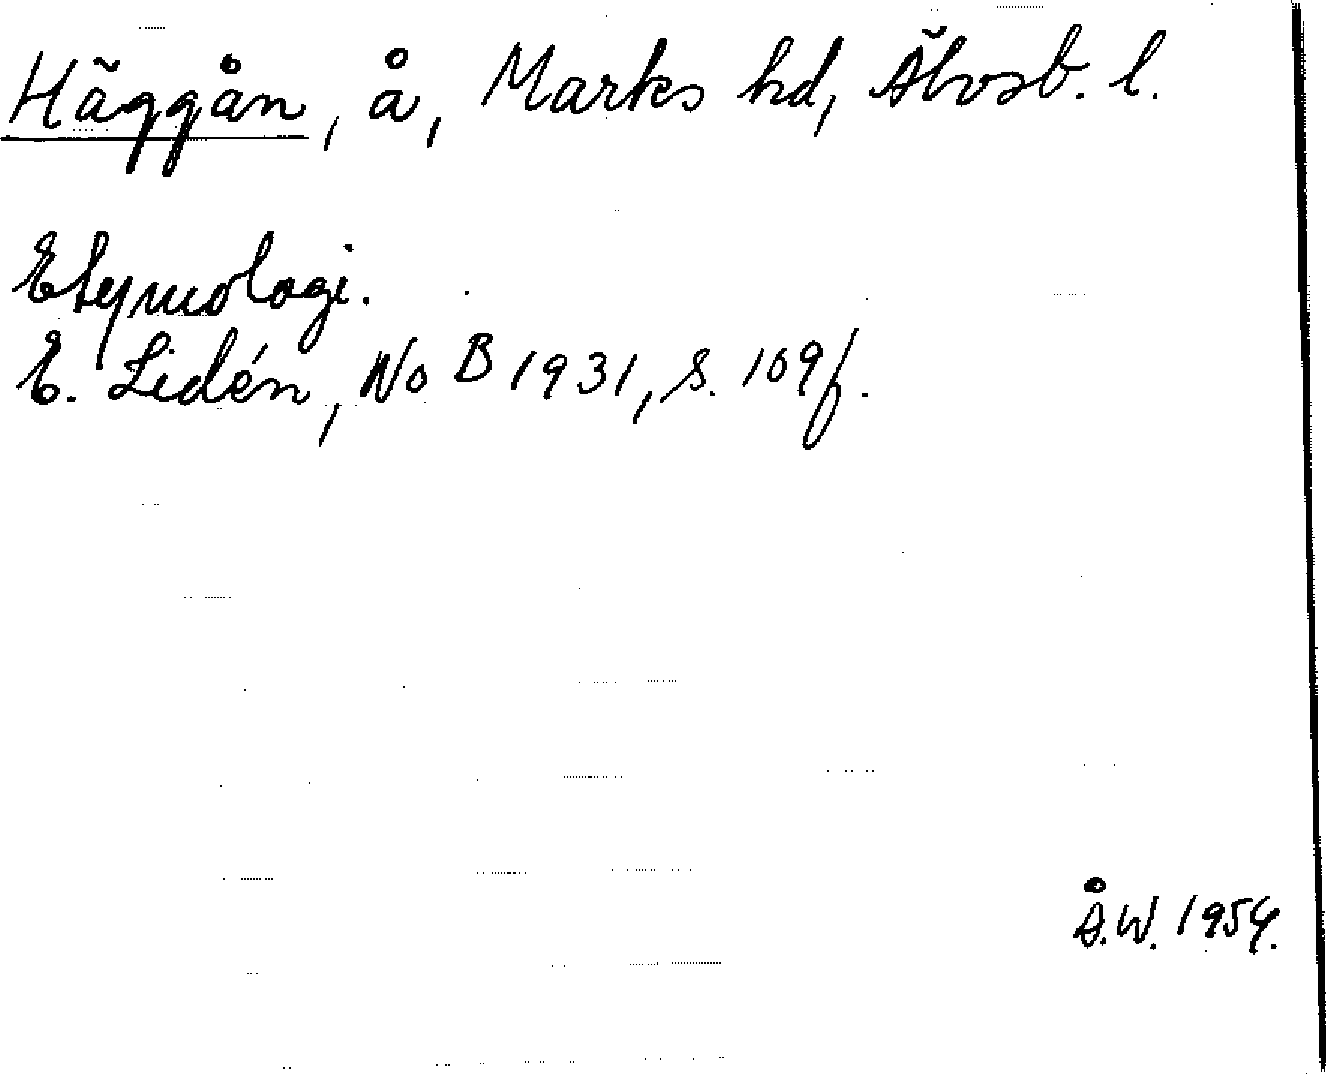 Häggån, å, Marks hd, Älvsb. l.
Etymologi.
E. Lidén, NoB 1931, s. 109f.
Å.W. 1954.